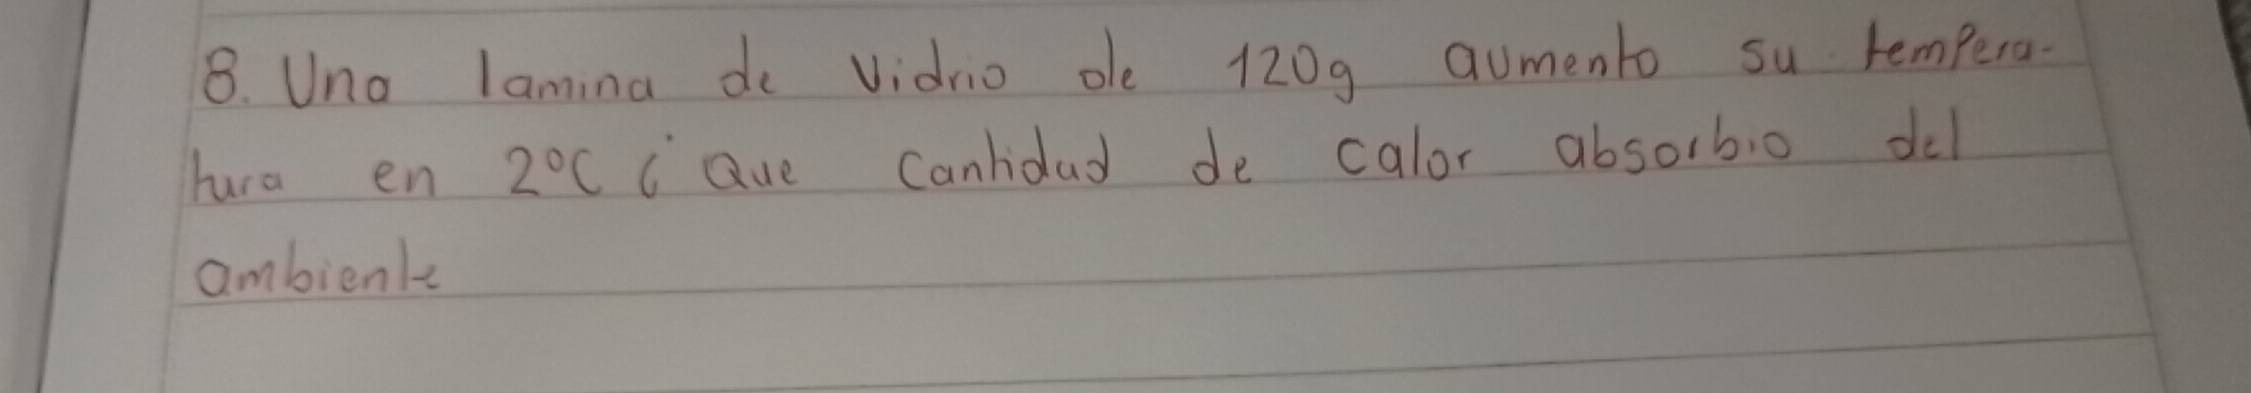 8. Una lamina de vidrio de 120g aumento su tempera-
tura en 2°C ¿Que cantidad de calor absorbio del
ambiente